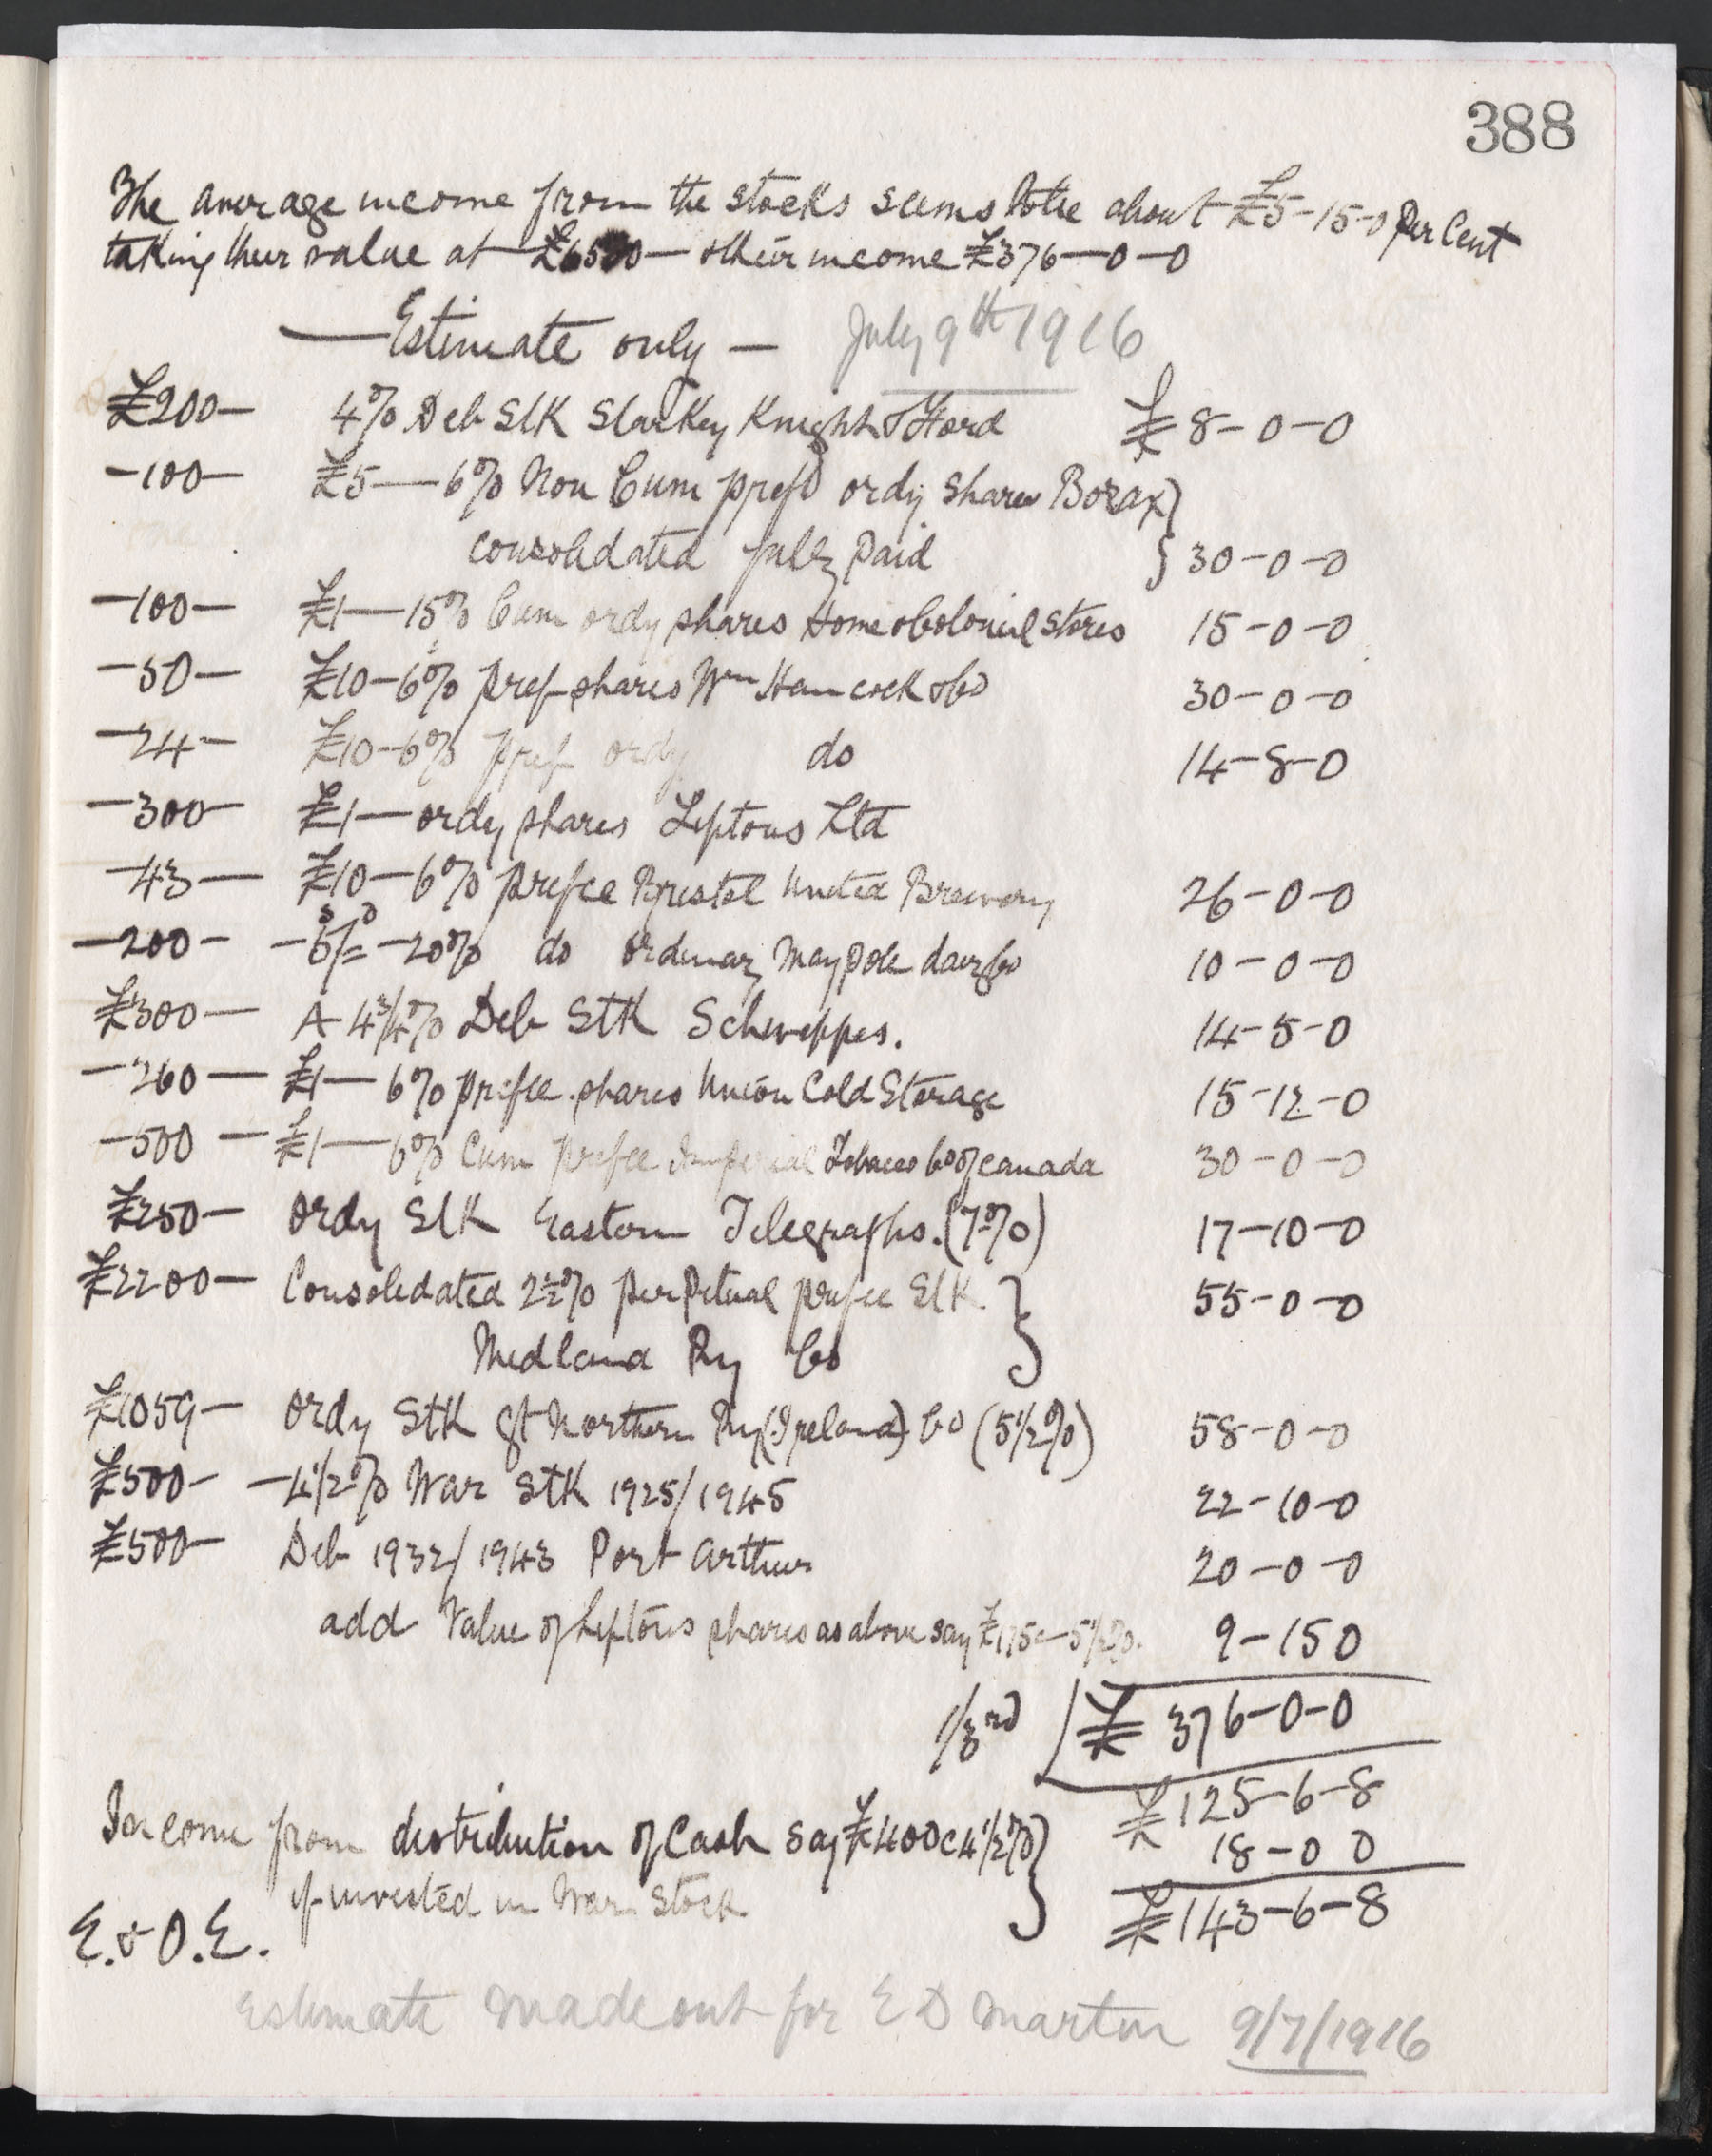 388
The average income from the stocks seems to be about £5-15-0 Per Cent
taking their value at £6500 — & their income £376-0-0
— Estimate only — July 9th 1916
£200- 4% Deb Stk Starkey Knight & Ford £8-0-0
-100- £5 — 6% Non Cum prefd ordy shares Borax }
consolidated fully paid } 30-0-0
-100- £1 — 15% Cum ordy shares Home & Colonial Stores 15-0-0
-50- £10-6% pref shares Wm Hancock & Co 30-0-0
-24- £10-6% pref ordy do 14-8-0
-300- £1 — ordy shares Liptons Ltd
-43- £10-6% prefce Bristol United Brewery 26-0-0
-200- -5s/=d -20% do ordinary Maypole dairy Co 10-0-0
£300- A 4 3/4% Deb Stk Schweppes. 14-5-0
-260- £1 — 6% prefce shares Union Cold Storage 15-12-0
-500- £1 — 6% Cum prefce Imperial Tobacco Co of Canada 30-0-0
£250- Ordy Stk Eastern Telegraphs. (7%) 17-10-0
£2200- Consolidated 2 1/2% perpetual prefce Stk } 55-0-0
Midland Ry Co
£1059- Ordy Stk Gt Northern Ry (Ireland) Co (5 1/2%) 58-0-0
£500- -4 1/2% War Stk 1925/1945 22-10-0
£500- Deb 1932/1943 Port Arthur 20-0-0
add Value of Liptons shares as above say £175 @ 5 1/2%. 9-15 0
1/3rd £376-0-0
£125-6-8
Income from distribution of Cash say £400 @ 4 1/2% } 18-0 0
if invested in War Stock £143-6-8
E. & O.E.
Estimate made out for E D Martin 9/7/1916